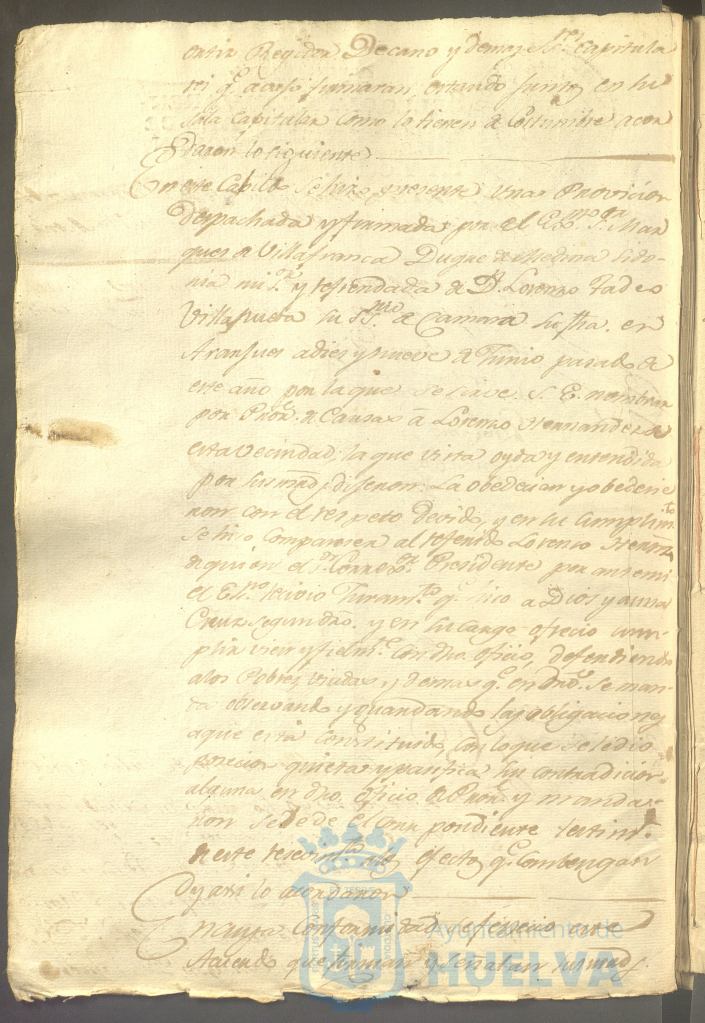 Regidor Decano y demas Sres. Capitula
res q. acaso firmaran, estando juntos en su
sala Capitular como lo tienen de Costumbre acor
daron lo siguiente
En este Cabildo se hizo presente una Provicion
despachada y firmada por el Exmo. Sr. Mar
ques de Villafranca Duque de Medina Sido-
nia mi Sr. y refrendada de Dn. Lorenzo Tadeo
Villanueva su Srio. de Camara su fha. en
Aranjues a dies y nueve de Junio pasado de
este año por la que se sirve S. E. nombrar
por Pror. de Causas a Lorenzo Hernandez de
esta Vecindad, la que vista oyda y entendida
por sus mrds. dijeron: La obedecian y obedecie
ron con el respeto devido, y en su Cumplimto.
se hiso Comparecer al referido Lorenzo Hernz.
de quien el Sr. Corregor. Presidente por ante mi
el Esno. recivio Juramto. q. hizo a Dios y a una
Cruz segun dro. y en su cargo ofrecio cum-
plir vien y fielmte. con dho. oficio, defendiendo
a los Pobres Viudas, y demas q. en dro. se man-
da observando y guardando las obligaciones
a que está Constituido, con lo que se le dio
posecion quieta y pacifica sin contradicion
alguna en dho. Oficio de Pror. y manda-
ron se le dé el Correspondiente testimo.
de este recivimto. a los efectos q. Combengan
y asi lo acordaron
En cuya Conformidad se fenecio este
Acuerdo que firman y señalan sus mrds.
Ayuntamiento de
HUELVA